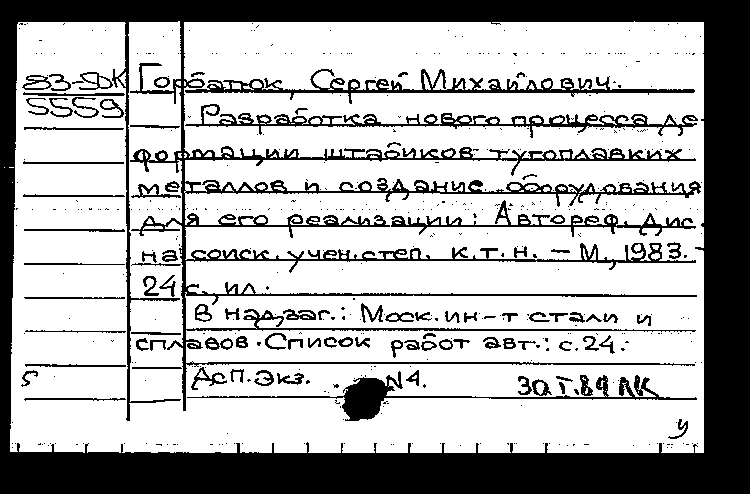 83-5DK Горбатюк, Сергей Михайлович.
5559 Разработка нового процесса де-
формации штабиков тугоплавких
металлов и создание оборудования
для его реализации: Автореф. Дис.
на соиск. учен. степ. к.т.н. – М., 1983. –
24 с., ил.
В надзаг.: Моск. ин-т стали и
сплавов. Список работ авт.: с. 24.
Дсп. Экз. N4.
5
у